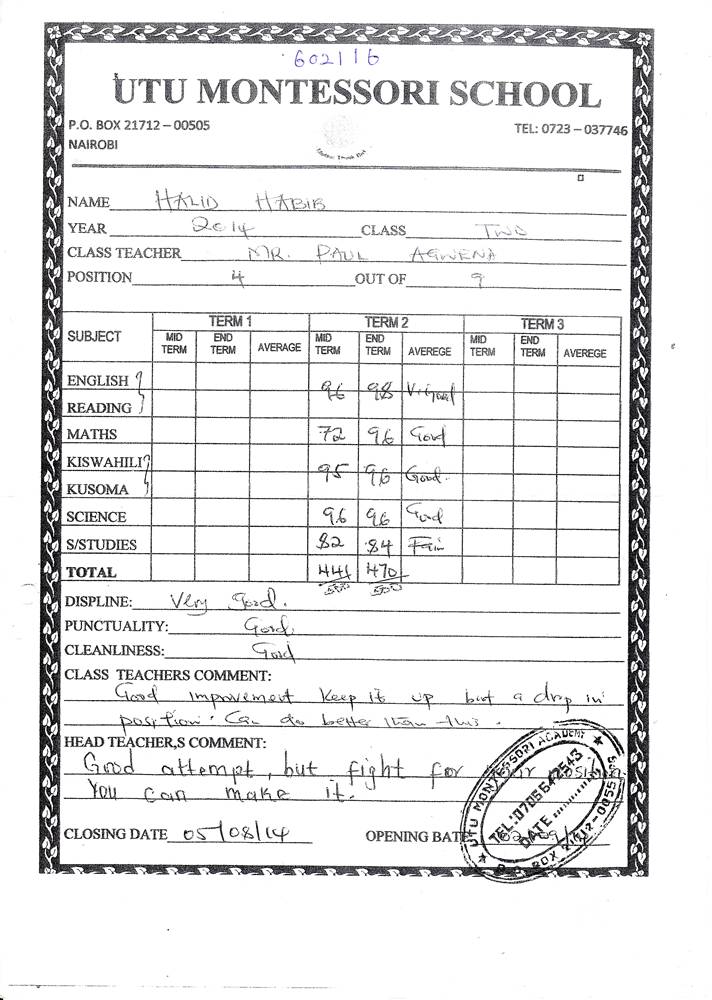 602116
UTU MONTESSORI SCHOOL
P.O. BOX 21712 – 00505
TEL: 0723 – 037746
NAIROBI
NAME HALID HABIB
YEAR 2014 CLASS TWO
CLASS TEACHER MR. PAUL AGWENA
POSITION 4 OUT OF 9
SUBJECT TERM 1 TERM 2 TERM 3
MID TERM END TERM AVERAGE MID TERM END TERM AVEREGE MID TERM END TERM AVEREGE
ENGLISH 96 98 V. Good
READING
MATHS 72 96 Good
KISWAHILI 95 96 Good.
KUSOMA
SCIENCE 96 96 Good
S/STUDIES 82 84 Fair
TOTAL 441 470
500 500
DISPLINE: Very good.
PUNCTUALITY: Good.
CLEANLINESS: Good
CLASS TEACHERS COMMENT:
Good improvement keep it up but a drop in
position. Can do better than this.
HEAD TEACHER,S COMMENT:
Good attempt, but fight for position
You can make it.
CLOSING DATE 05/08/14 OPENING DATE
UTU MONTESSORI ACADEMY
TEL:0705642543
DATE
P.O. BOX 21712-00505